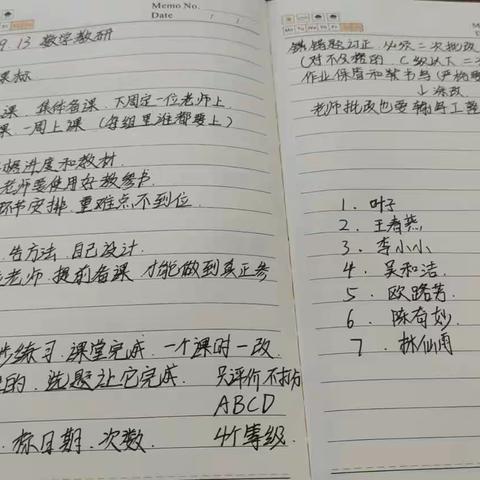 Memo No.
Date
9.13 数学教研
课标
课 集体备课 下周定一位老师上
课 一周上课 (每组里谁都要上)
据进度和教材
老师要使用好教参书
环节安排 重难点不到位
告方法 自己设计
老师 提前备课 才能做到真正参
步练习 课堂完成 一个课时一改
的 选题让它完成 只评价不打分
ABCD
标日期 次数 4个等级
错题订正 必须二次批改
(对不及格的 C级以下二
作业保质和禁书写
↓涂改
老师批改也要书写工整
1. 叶子
2. 王春燕
3. 李小小
4. 吴和洁
5. 欧路芳
6. 陈奇妙
7 林仙雨